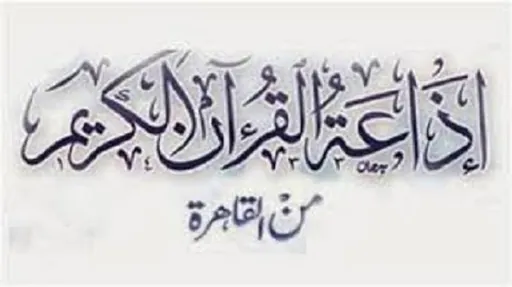 إِذَاعَةُ القُرْءَآنِ الكَرِيمِ
مِنَ القاهرة